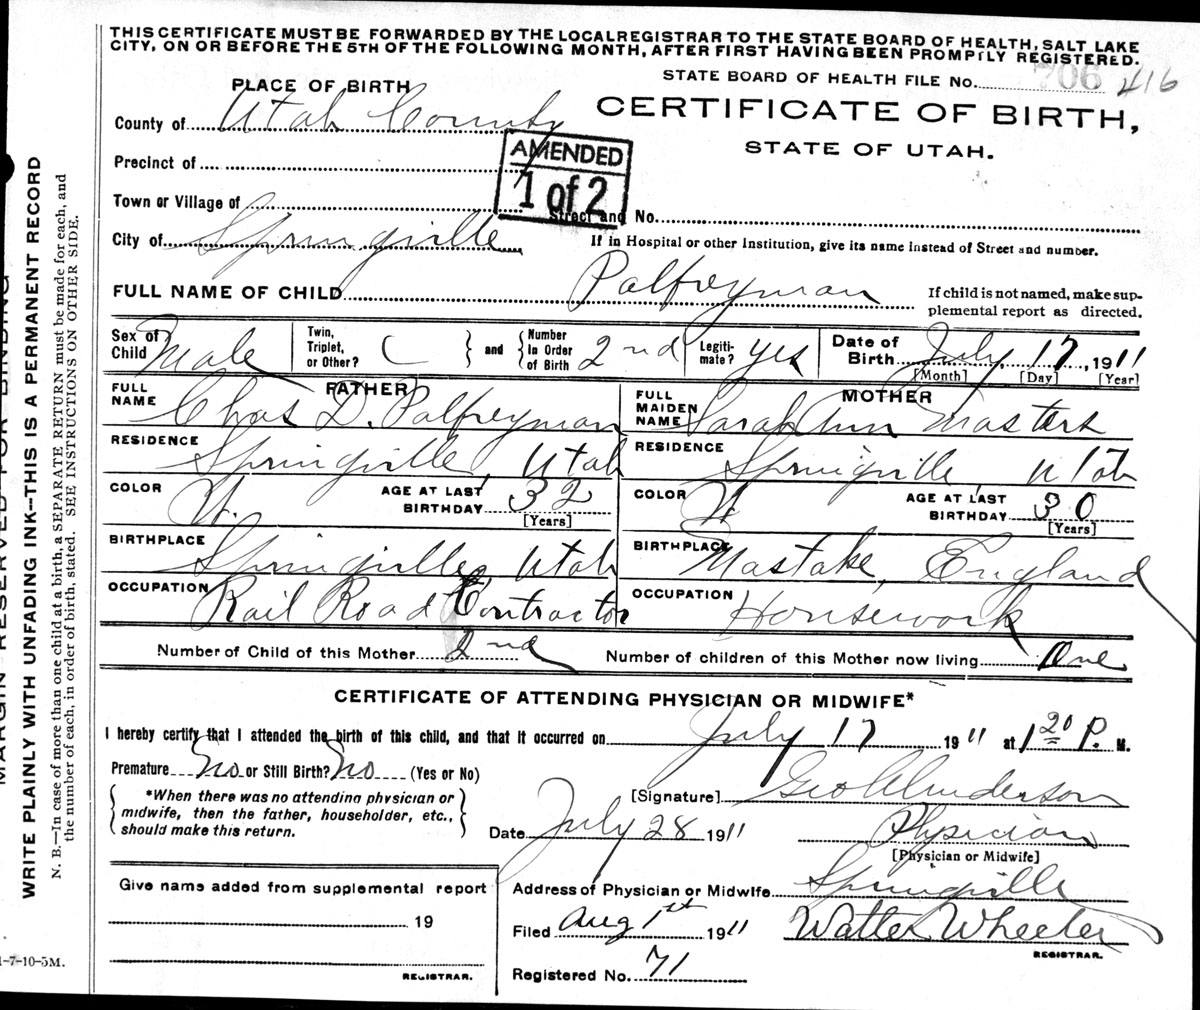 THIS CERTIFICATE MUST BE FORWARDED BY THE LOCAL REGISTRAR TO THE STATE BOARD OF HEALTH, SALT LAKE
CITY, ON OR BEFORE THE 5TH OF THE FOLLOWING MONTH, AFTER FIRST HAVING BEEN PROMPTLY REGISTERED.
STATE BOARD OF HEALTH FILE No. 706 416
PLACE OF BIRTH
CERTIFICATE OF BIRTH,
STATE OF UTAH.
County of Utah County
AMENDED
1 of 2
Precinct of
Town or Village of
Street and No.
City of Springville
If in Hospital or other Institution, give its name instead of Street and number.
FULL NAME OF CHILD Palfreyman
If child is not named, make sup-
plemental report as directed.
Sex of Child Male
Twin, Triplet, or Other?
and
Number In Order of Birth 2nd
Legiti-mate? yes
Date of Birth July 17, 1911
[Month] [Day] [Year]
FATHER
FULL NAME Chas D. Palfreyman
RESIDENCE Springville, Utah
COLOR W. AGE AT LAST BIRTHDAY 32 [Years]
BIRTHPLACE Springville, Utah
OCCUPATION Rail Road Contractor
MOTHER
FULL MAIDEN NAME Sarah Ann Masters
RESIDENCE Springville Utah
COLOR W AGE AT LAST BIRTHDAY 30 [Years]
BIRTHPLACE England
OCCUPATION Housework
Number of Child of this Mother 2nd
Number of children of this Mother now living One
CERTIFICATE OF ATTENDING PHYSICIAN OR MIDWIFE*
I hereby certify that I attended the birth of this child, and that it occurred on July 17 1911 at 1 20 P. M.
Premature No or Still Birth? No (Yes or No)
*When there was no attending physician or
midwife, then the father, householder, etc.,
should make this return.
[Signature] Geo Anderson
Date July 28 1911
Physician
[Physician or Midwife]
Give name added from supplemental report
19
REGISTRAR.
Address of Physician or Midwife Springville
Filed Aug 1st 1911
Walter Wheeler
REGISTRAR.
Registered No. 71
MARGIN RESERVED FOR BINDING
WRITE PLAINLY WITH UNFADING INK--THIS IS A PERMANENT RECORD
N. B.—In case of more than one child at a birth, a SEPARATE RETURN must be made for each, and
the number of each, in order of birth, stated. SEE INSTRUCTIONS ON OTHER SIDE.
1-7-10-5M.